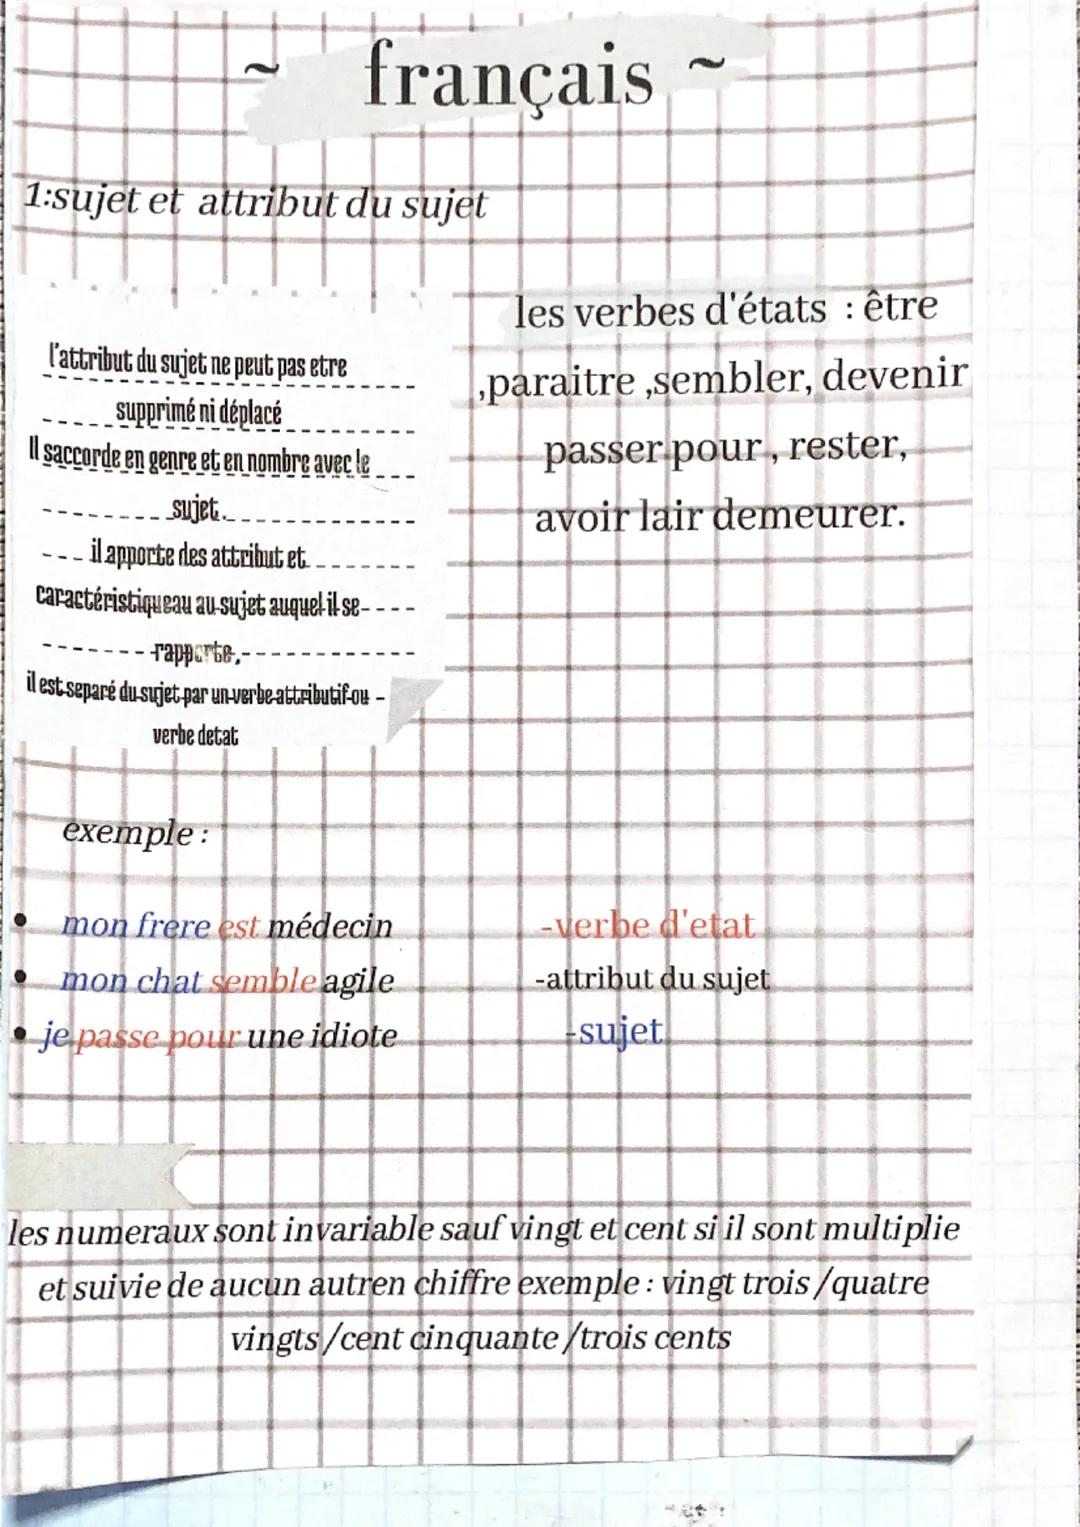 ~ français ~
1:sujet et attribut du sujet
l'attribut du sujet ne peut pas etre
supprimé ni déplacé
Il saccorde en genre et en nombre avec le
sujet.
il apporte des attribut et
caractéristiqueau au sujet auquel il se
rapporte.
il est separé du sujet par un verbe attributif ou
verbe detat
les verbes d'états : être
,paraitre ,sembler, devenir
passer pour , rester,
avoir lair demeurer.
exemple :
• mon frere est médecin
• mon chat semble agile
• je passe pour une idiote
-verbe d'etat
-attribut du sujet
-sujet
les numeraux sont invariable sauf vingt et cent si il sont multiplie
et suivie de aucun autren chiffre exemple : vingt trois /quatre
vingts /cent cinquante /trois cents